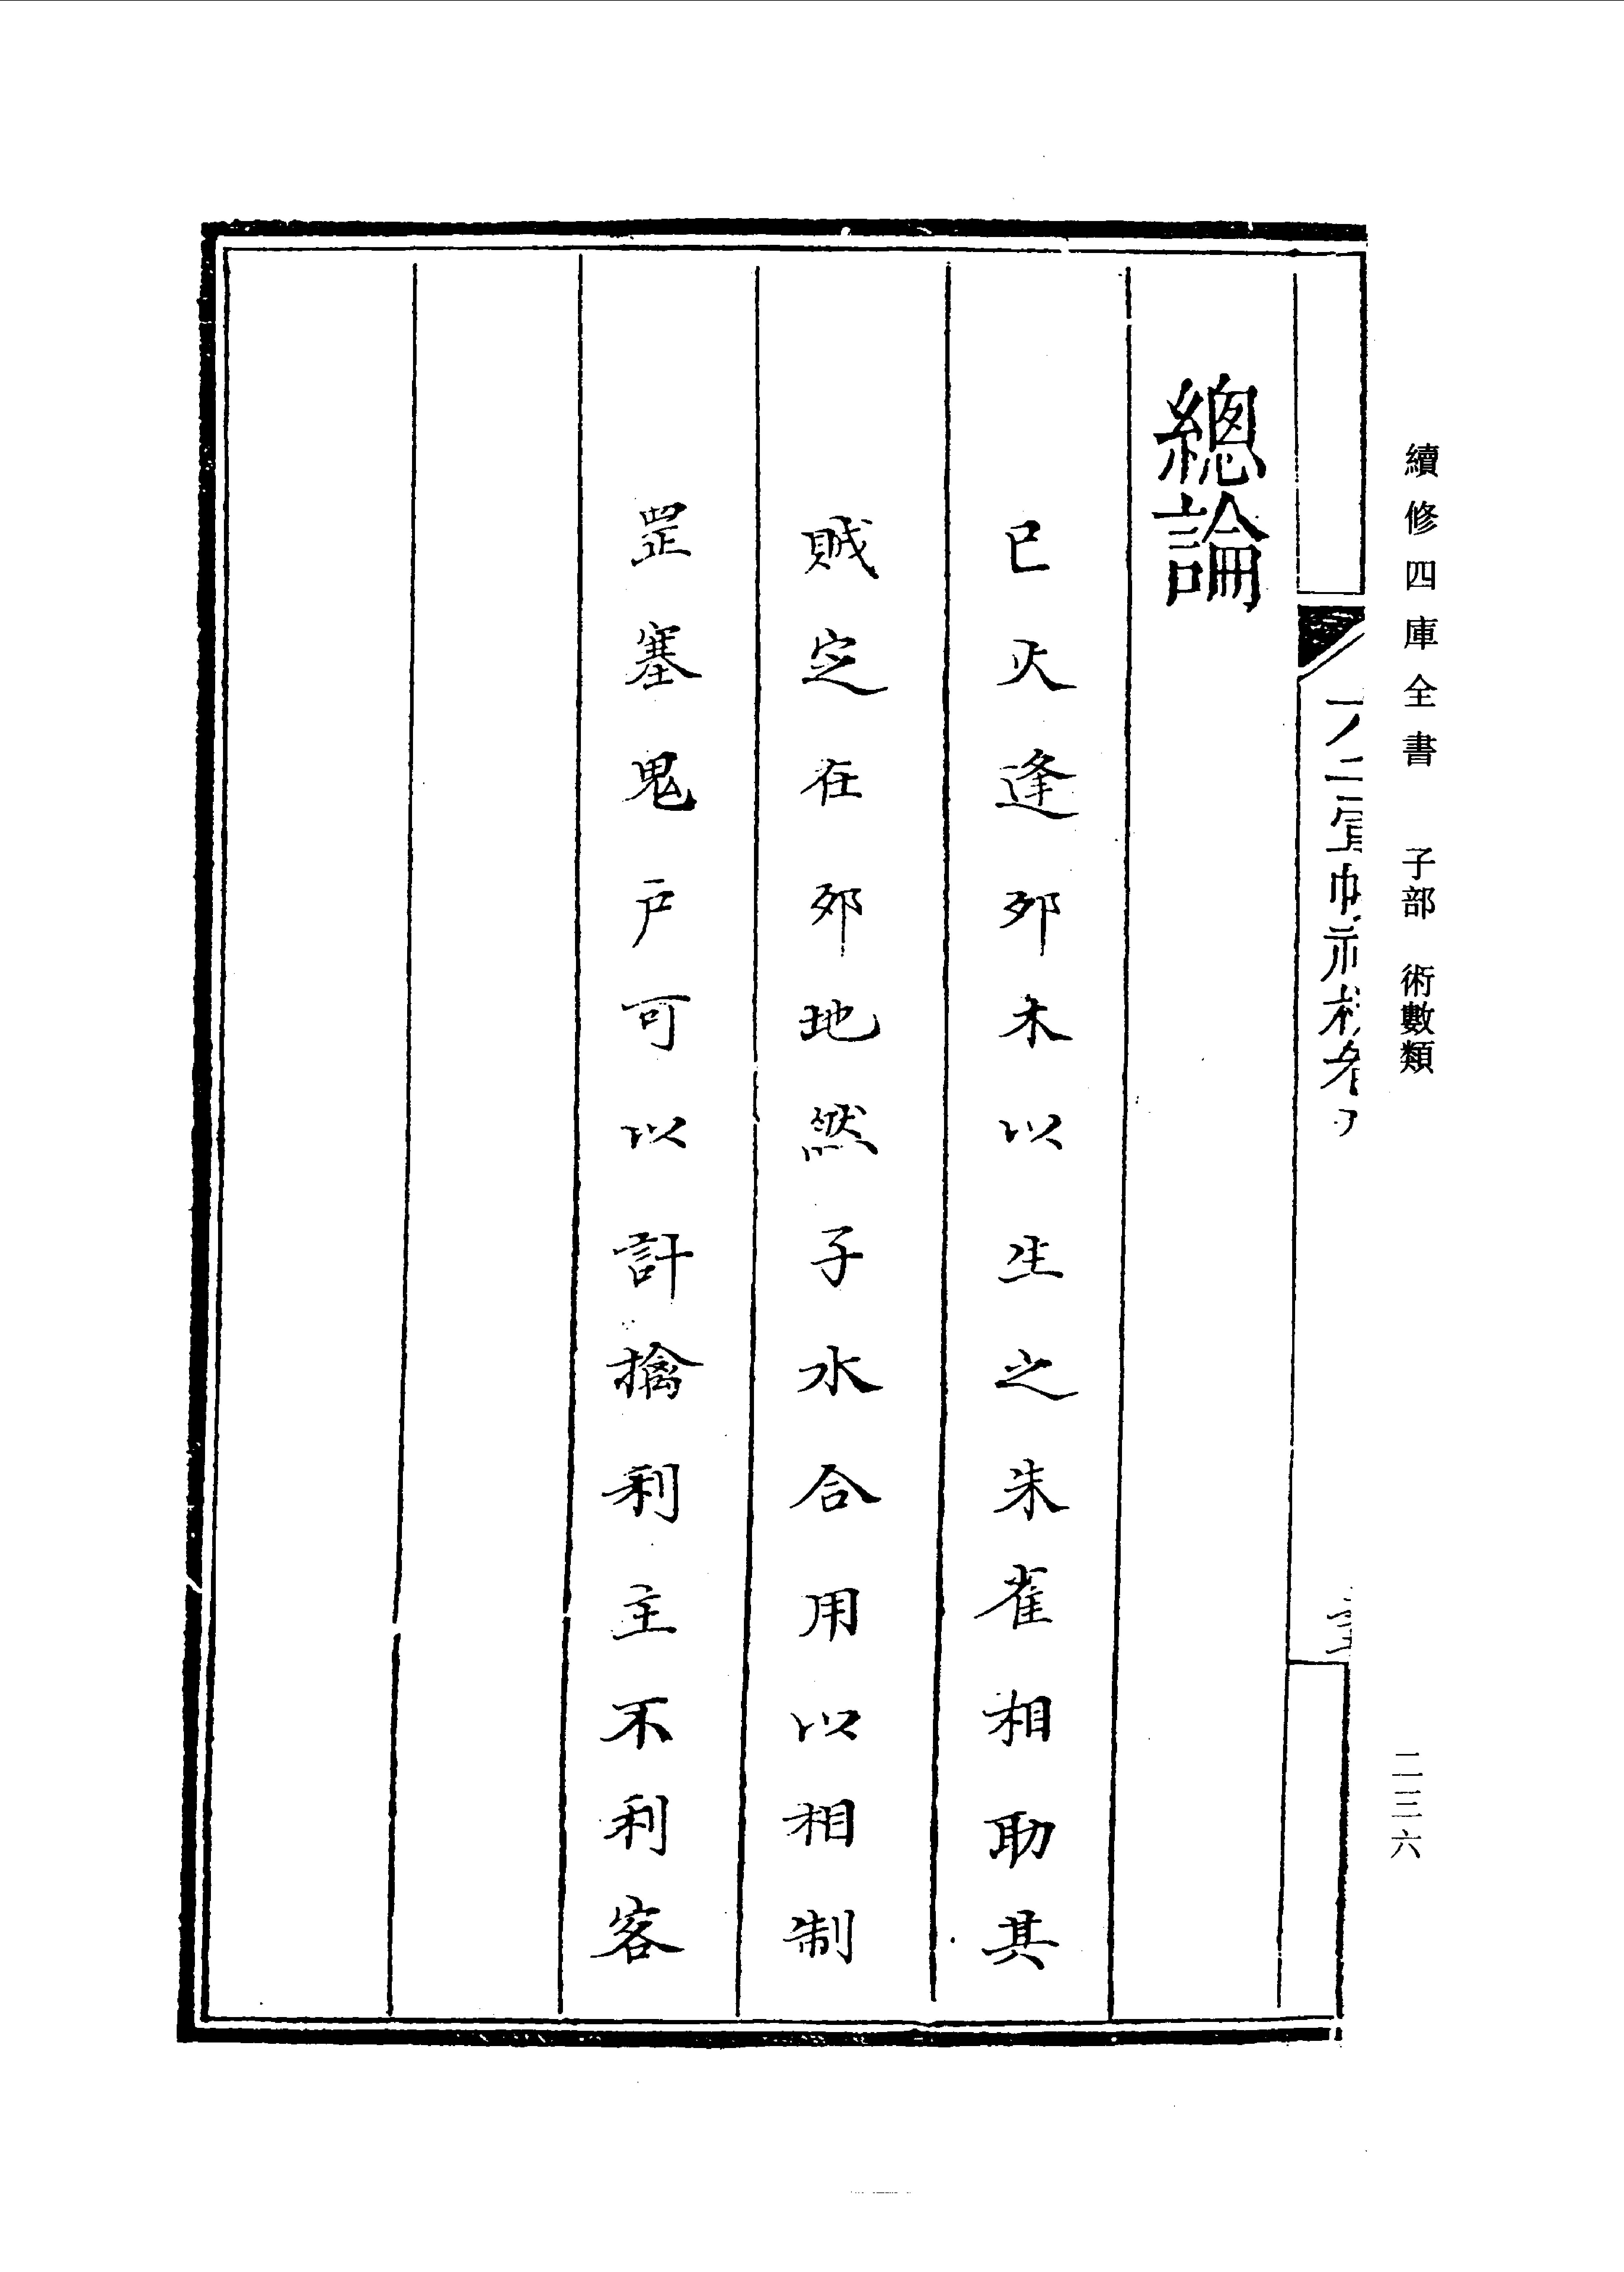 續修四庫全書 子部 術數類
二三六
總論
巳火逢夘木以生之朱雀相助其
賊定在夘地然子水合用以相制
罡塞鬼户可以計擒利主不利客